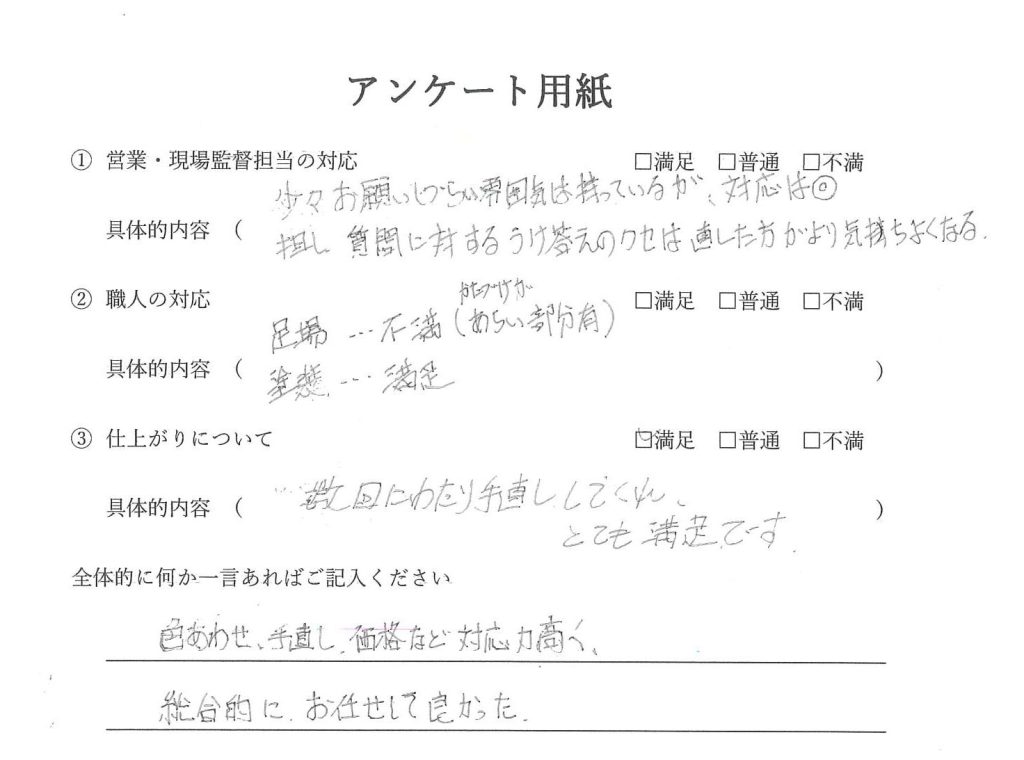 アンケート用紙
① 営業・現場監督担当の対応 □満足 □普通 □不満
少々お願いしづらい雰囲気は持っているが、対応は◎
具体的内容 (
担し 質問に対するうけ答えのクセは直した方がより気持ちよくなる.
② 職人の対応 □満足 □普通 □不満
かたづけが
足場 …不満(あらい部分有)
具体的内容 ( )
塗装 … 満足
③ 仕上がりについて ☑満足 □普通 □不満
数回にわたり手直ししてくれ、
具体的内容 ( )
とても満足です.
全体的に何か一言あればご記入ください
色あわせ、手直し、価格など対応力高く、
総合的に、お任せして良かった.